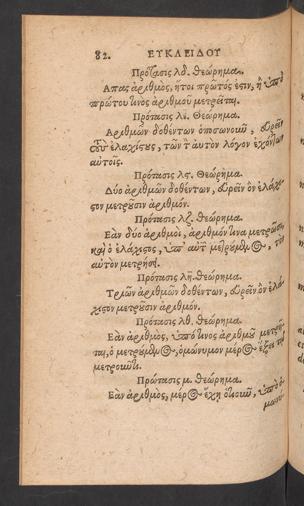 82. ΕΥΚΛΕΙΔΟΥ
Πρότασις λδ. θεώρημα.
Απας ἀριθμὸς, ἤτοι πρῶτός ἐστιν, ἢ ὑπὸ
πρώτου τινὸς ἀριθμοῦ μετρεῖται.
Πρότασις λε. θεώρημα.
Αριθμῶν δοθέντων ὁποσωνοῦν, εὑρεῖν
τοὺς ἐλαχίστους, τῶν τ αὐτὸν λόγον ἐχόντων
αὐτοῖς.
Πρότασις λϛ. θεώρημα.
Δύο ἀριθμῶν δοθέντων, εὑρεῖν ὃν ἐλάχι-
στον μετροῦσιν ἀριθμόν.
Πρότασις λζ. θεώρημα.
Εὰν δύο ἀριθμοὶ, ἀριθμόν τινα μετρῶσιν,
καὶ ὁ ἐλάχιστος, ὑπ αὐτῶν μετρούμενος, τὸν
αὐτὸν μετρήσει.
Πρότασις λη. θεώρημα.
Τριῶν ἀριθμῶν δοθέντων, εὑρεῖν ὃν ἐλά-
χιστον μετροῦσιν ἀριθμόν.
Πρότασις λθ. θεώρημα.
Εὰν ἀριθμὸς, ὑπό τινος ἀριθμοῦ μετρῆ-
ται, ὁ μετρούμενος, ὁμώνυμον μέρος ἕξει τῷ
μετροῦντι.
Πρώτασις μ. θεώρημα.
Εὰν ἀριθμὸς, μέρος ἔχῃ ὁτιοῦν, ὑπὸ ὁ-
μωνύ-